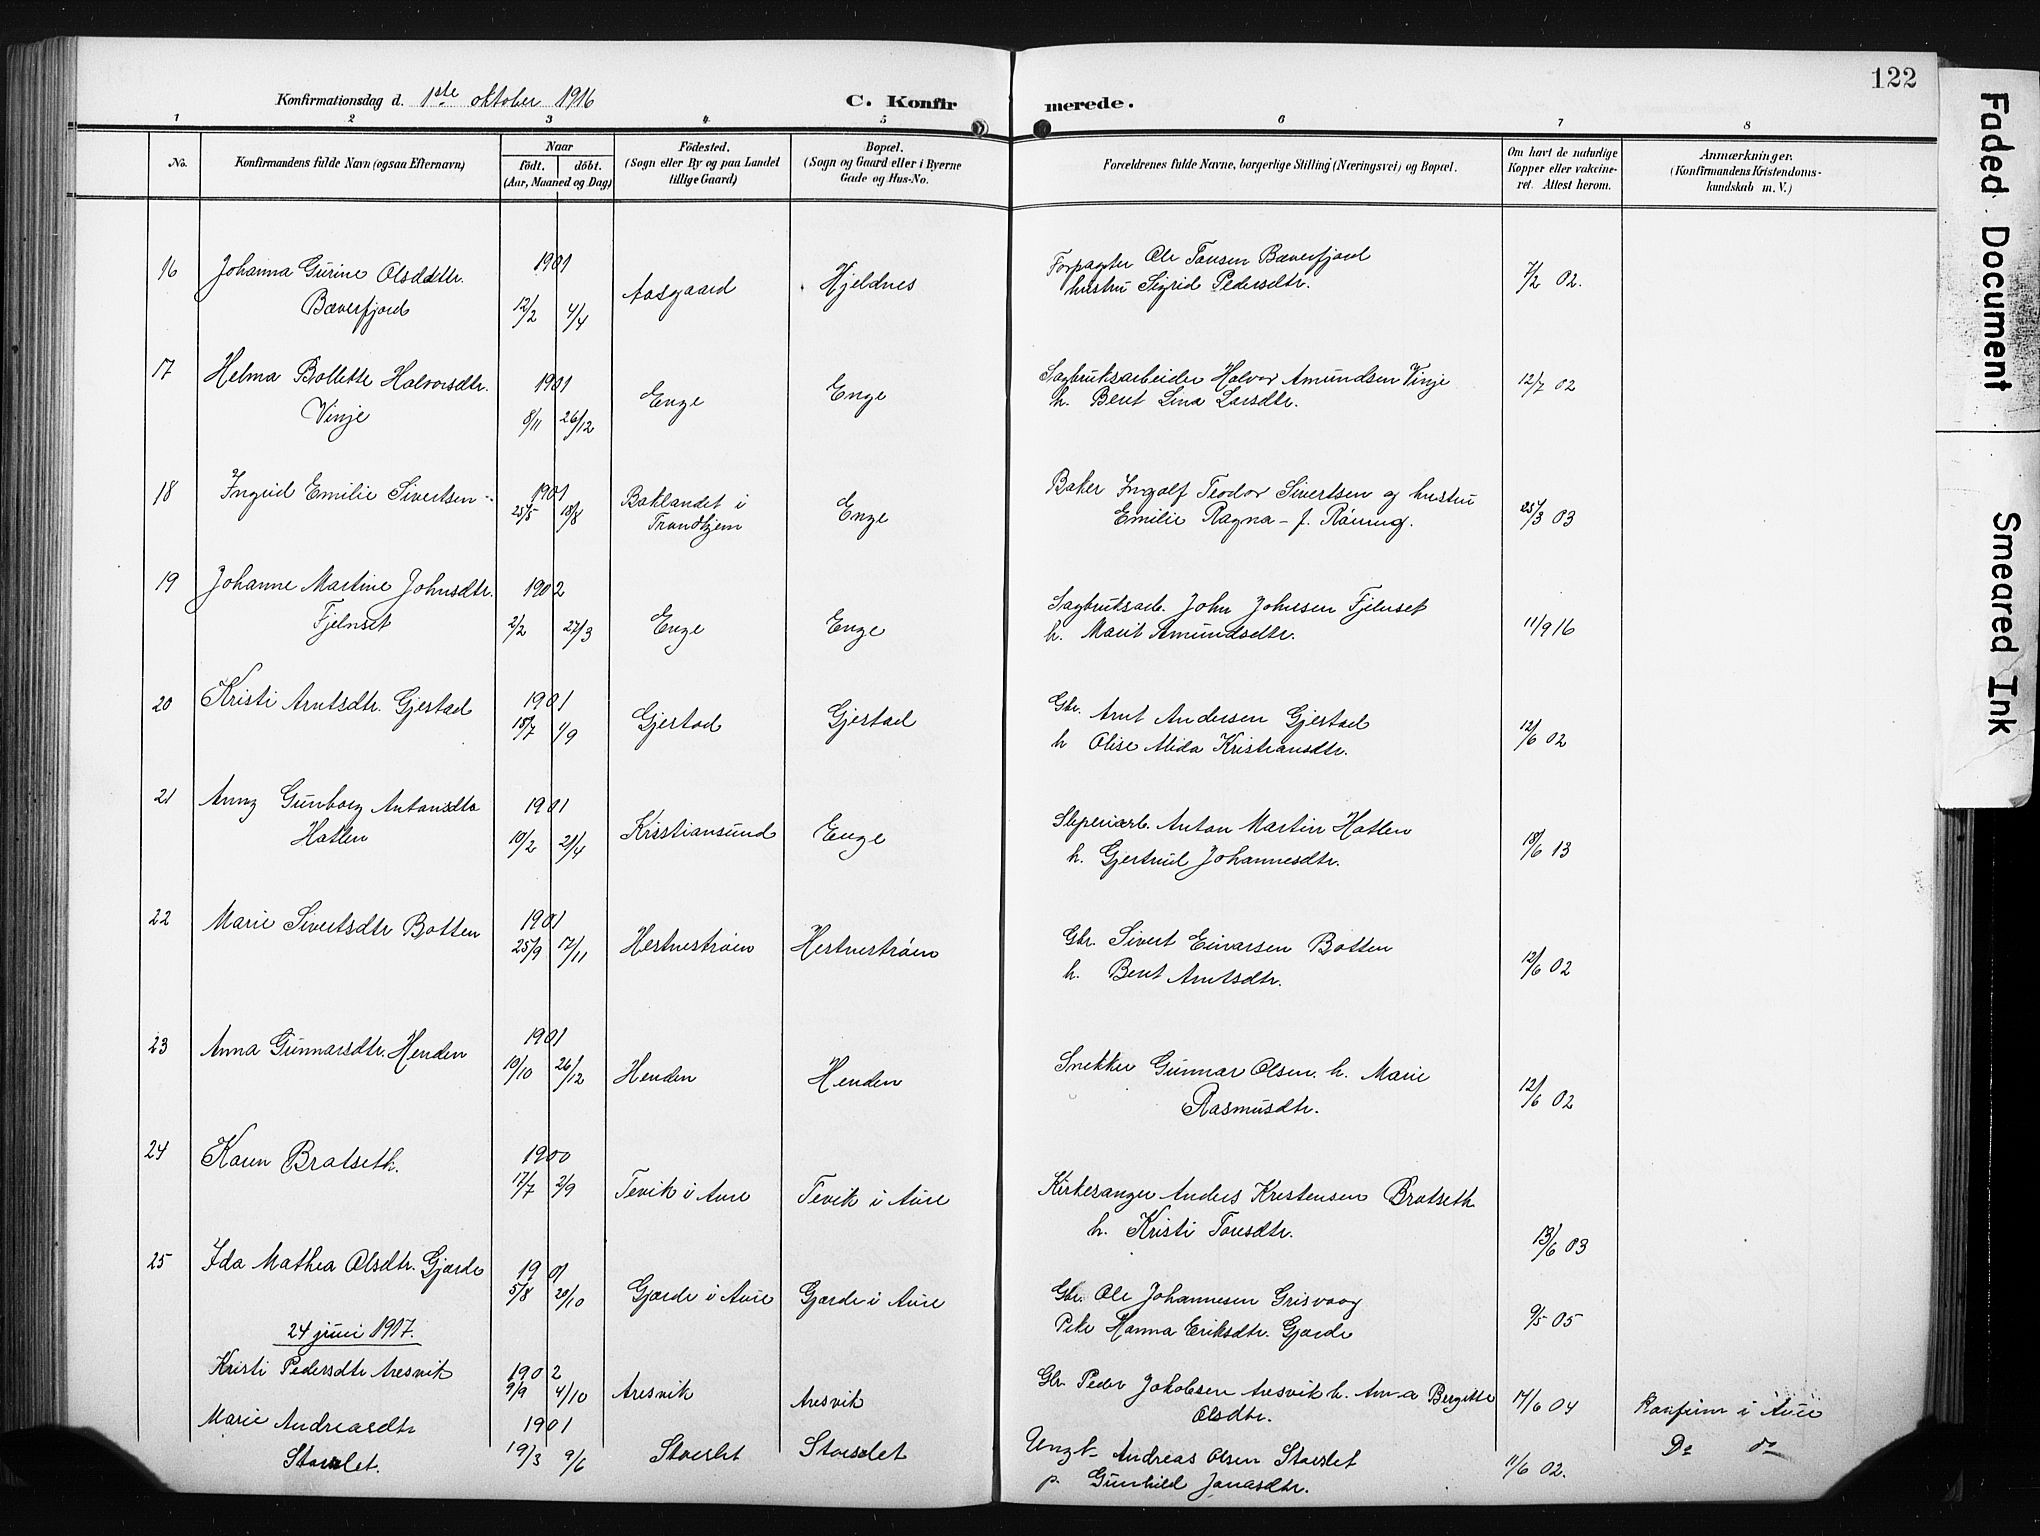 122
Konfirmationsdag d. 1ste oktober 1916
C. Konfirmerede.
1 2 3 4 5 6 7 8
No.
Konfirmandens fulde Navn (ogsaa Efternavn)
Naar
født. døbt.
(Aar, Maaned og Dag)
Fødested.
(Sogn eller By og paa Landet
tillige Gaard)
Bopæl.
(Sogn og Gaard eller i Byerne
Gade og Hus-No.
Forældrenes fulde Navne, borgerlige Stilling (Næringsvei) og Bopæl.
Om havt de naturlige
Kopper eller vakcine-
ret. Attest herom.
Anmærkninger.
(Konfirmandens Kristendoms-
kundskab m. V.)
16 Johanna Gurine Olsdttr. 1901 Aasgaard Hjeldnes Forpagter Ole Tansen Bæverfjord 7/2 02.
Bæverfjord 12/2 4/4 hustru Sigrid Pedersdtr.
17 Helma Bollette Halvorsdtr. 1901 Enge Enge Sagbruksarbeider Halvor Amundsen Vinje 12/7 02
Vinje 8/11 26/12 h. Berit Lina Larsdtr.
18 Ingrid Emilie Sivertsen 1901 Baklandet i Enge Baker Ingolf Teodor Sivertsen og hustru 25/3 03
25/5 18/8 Trondhjem Emilie Ragna - f. Røning.
19 Johanne Martine Johnsdtr. 1902 Sagbruksarb. John Johnsen Fjelnset
Fjelnset 2/2 27/3 Enge Enge h. Marit Amundsdtr. 11/9 16
20 Kristi Arntsdtr. Gjestad 1901 Gjestad Gjestad Gbr. Arnt Andersen Gjestad 12/6 02
18/7 1/9 h Olise Alida Kristiansdtr.
21 Anny Gunborg Antonsdtr 1901 Kristiansund Enge Sliperiarb. Anton Martin Hatlen 18/6 13
Hatlen 10/2 21/4 h. Gjertrud Johannesdtr.
22 Marie Sivertsdtr Botten 1901 Gbr. Sivert Einarsen Botten
25/9 17/11 Hestnestrøen Hestnestrøen h. Berit Arntsdtr. 12/6 02
23 Anna Gunnarsdtr. Henden 1901 Snekker Gunnar Olsen. h. Marie
10/10 26/12 Henden Henden Rasmusdtr. 12/6 02
24 Karen Bratseth. 1900
17/7 2/9 Tevik i Aure Tevik i Aure Kirkesanger Anders Kristensen Bratseth
h. Kristi Tansdtr. 13/6 03
25 Ida Mathea Olsdtr. Gjærde 1901
5/8 20/10 Gjærde i Aure Gjærde i Aure Gbr. Ole Johannesen Grisvaag 9/5 05
24 juni 1917. Pike Hanna Eriksdtr. Gjærde
Kristi Pedersdtr Aresvik 1902 Gbr. Peder Jakobsen Aresvik h. Anna Bergitte
9/9 4/10 Aresvik Aresvik Olsdtr. 17/6 04 Konfirm i Aure
Marie Andreasdtr 1901
Storslet. 19/3 9/6 Storslet Storslet Ungk. Andreas Olsen Storslet 11/6 02. Do do
p. Gunhild Jonasdtr.
Faded Document
Smeared Ink